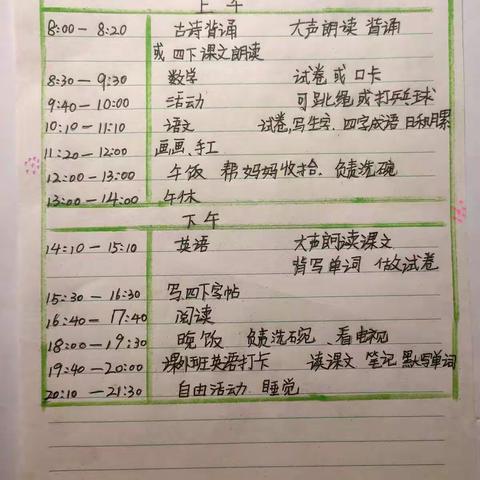 上午
8:00-8:20 古诗背诵 大声朗读 背诵
或 四下课文朗读
8:30-9:30 数学 试卷 或 口卡
9:40-10:00 活动 可跳绳或打乒乓球
10:10-11:10 语文 试卷,写生字. 四字成语 日积月累
11:20-12:00 画画、手工
12:00-13:00 午饭 帮妈妈收拾. 负责洗碗
13:00-14:00 午休
下午
14:10-15:10 英语 大声朗读课文
背写单词 做试卷
15:30-16:30 写四下字帖
16:40-17:40 阅读
18:00-19:30 晚饭 负责洗碗、看电视
19:40-20:00 课外班英语打卡 读课文 笔记 默写单词
20:10-21:30 自由活动 睡觉